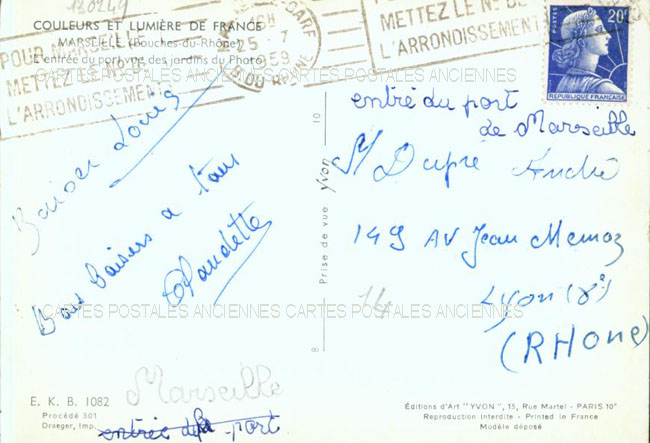 130249
COULEURS ET LUMIÈRE DE FRANCE
MARSEILLE (Bouches-du-Rhône)
L'entrée du port vue des jardins du Pharo
POUR
METTEZ LE
L'ARRONDISSEMENT
GARE
25-7
1959
DU RHONE
METTEZ LE N° DE
L'ARRONDISSEMENT
POSTES
20F
REPUBLIQUE FRANÇAISE
CARTES POSTALES ANCIENNES CARTES POSTALES ANCIENNES
entré du port
de Marseille
Baiser Louis
Bons baisers a tous
Claudette
Prise de vue Yvon
10
8
Dupré André
149 AV Jean Memoz
Lyon
(RHONE)
14
CARTES POSTALES ANCIENNES CARTES POSTALES ANCIENNES
Marseille
entrée du port
E. K. B. 1082
Procédé 301
Draeger, Imp.
Éditions d'Art "YVON", 15, Rue Martel - PARIS 10e
Reproduction interdite - Printed in France
Modèle déposé